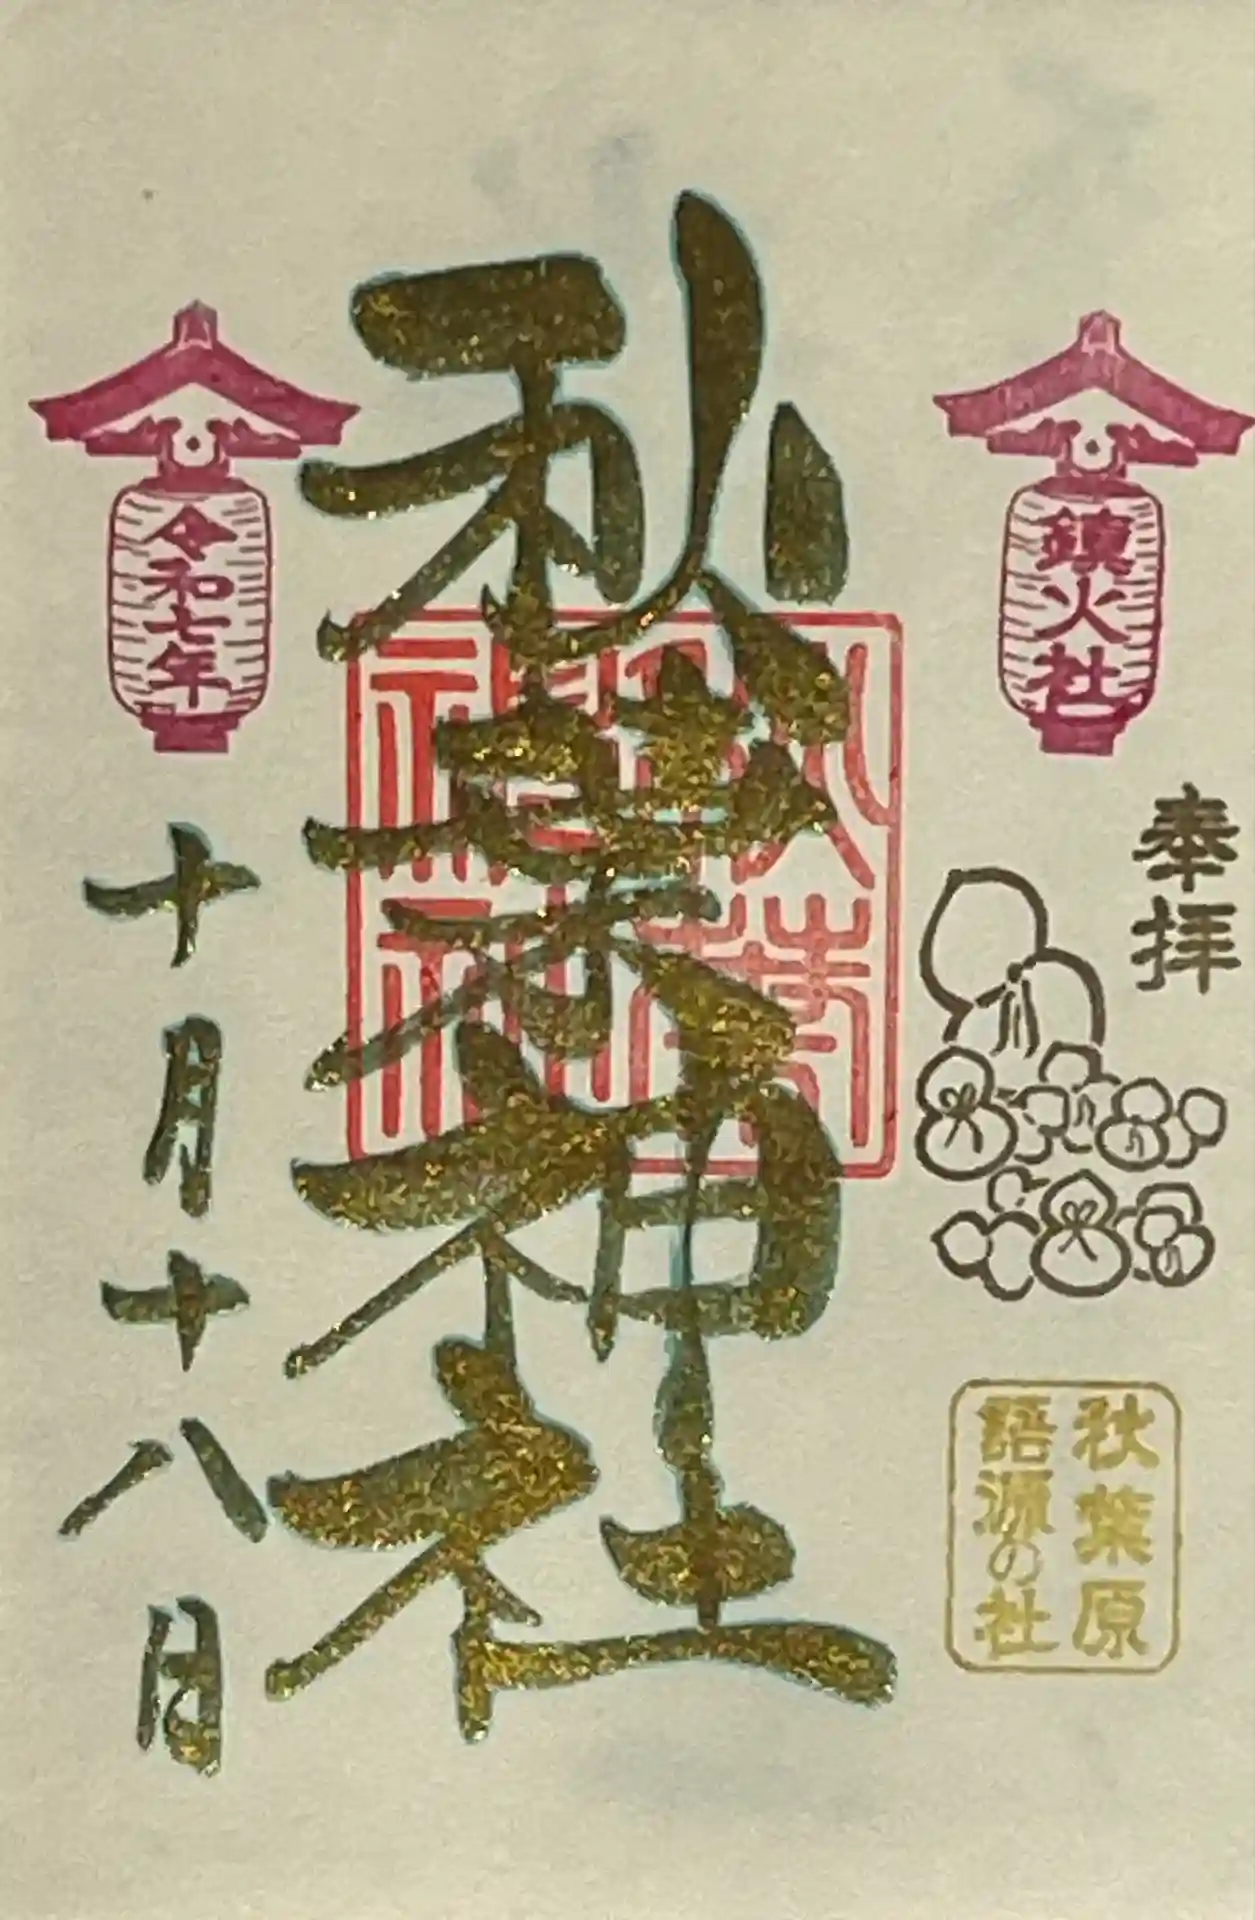 奉拝
鎮火社
秋葉原
語源の社
秋葉神社
秋葉
神社
令和七年
十月十八日